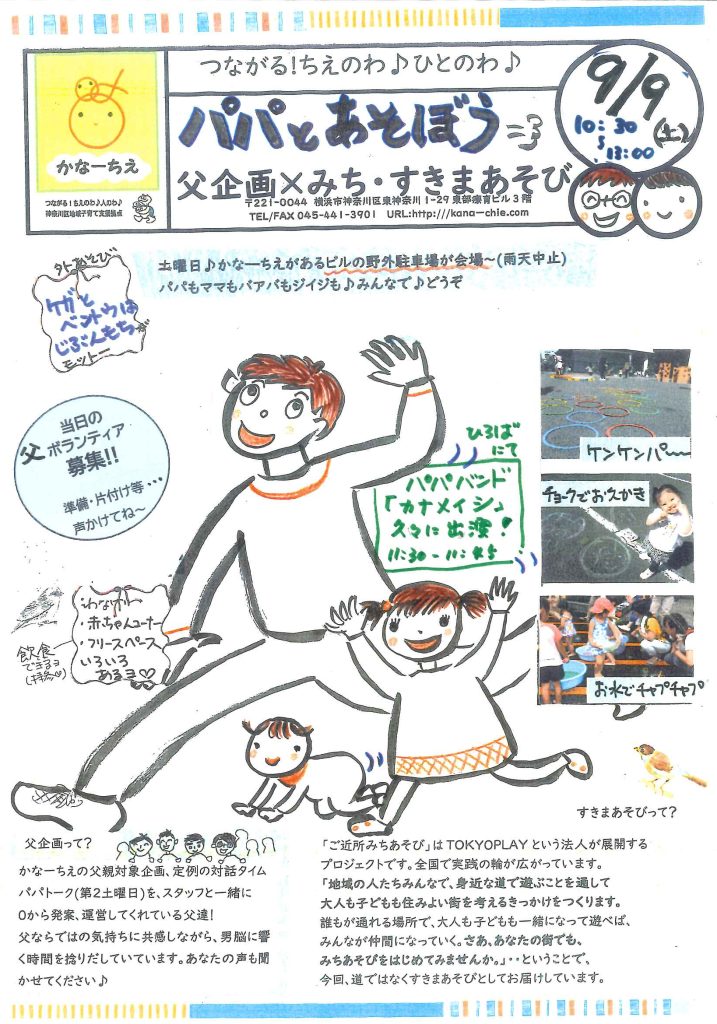 つながる！ちえのわ♪ひとのわ♪
9/9
(土)
10：30
〜
13:00
かなーちえ
つながる！ちえのわ♪人のわ♪
神奈川区地域子育て支援拠点
パパとあそぼう
父企画×みち・すきまあそび
〒221-0044 横浜市神奈川区東神奈川 1-29 東部療育ビル３階
TEL/FAX 045-441-3901 URL:http://kana-chie.com
土曜日♪かなーちえがあるビルの野外駐車場が会場～(雨天中止)
パパもママもバアバもジイジも♪みんなで♪どうぞ
外あそび
ケガと
ベントウは
じぶんもち
モットー
当日の
父ボランティア
募集!!
準備・片付け等・・・
声かけてね～
ひろば
にて
パパバンド
「カナメイシ」
久々に出演！
11:30-11:45
ケンケンパー
チョークでおえかき
お水でチャプチャプ
・赤ちゃんコーナー
・フリースペース
いろいろ
あるヨ♡
飲食
できるヨ
すきまあそびって？
父企画って？
かなーちえの父親対象企画、定例の対話タイム
パパトーク(第2土曜日)を、スタッフと一緒に
0から発案、運営してくれている父達！
父ならではの気持ちに共感しながら、男脳に響
く時間を捻りだしています。あなたの声も聞
かせてください♪
「ご近所みちあそび」は TOKYOPLAY という法人が展開する
プロジェクトです。全国で実践の輪が広がっています。
「地域の人たちみんなで、身近な道で遊ぶことを通して
大人も子どもも住みよい街を考えるきっかけをつくります。
誰もが通れる場所で、大人も子どもも一緒になって遊べば、
みんなが仲間になっていく。さあ、あなたの街でも、
みちあそびをはじめてみませんか。」・・ということで、
今回、道ではなくすきまあそびとしてお届けしています。